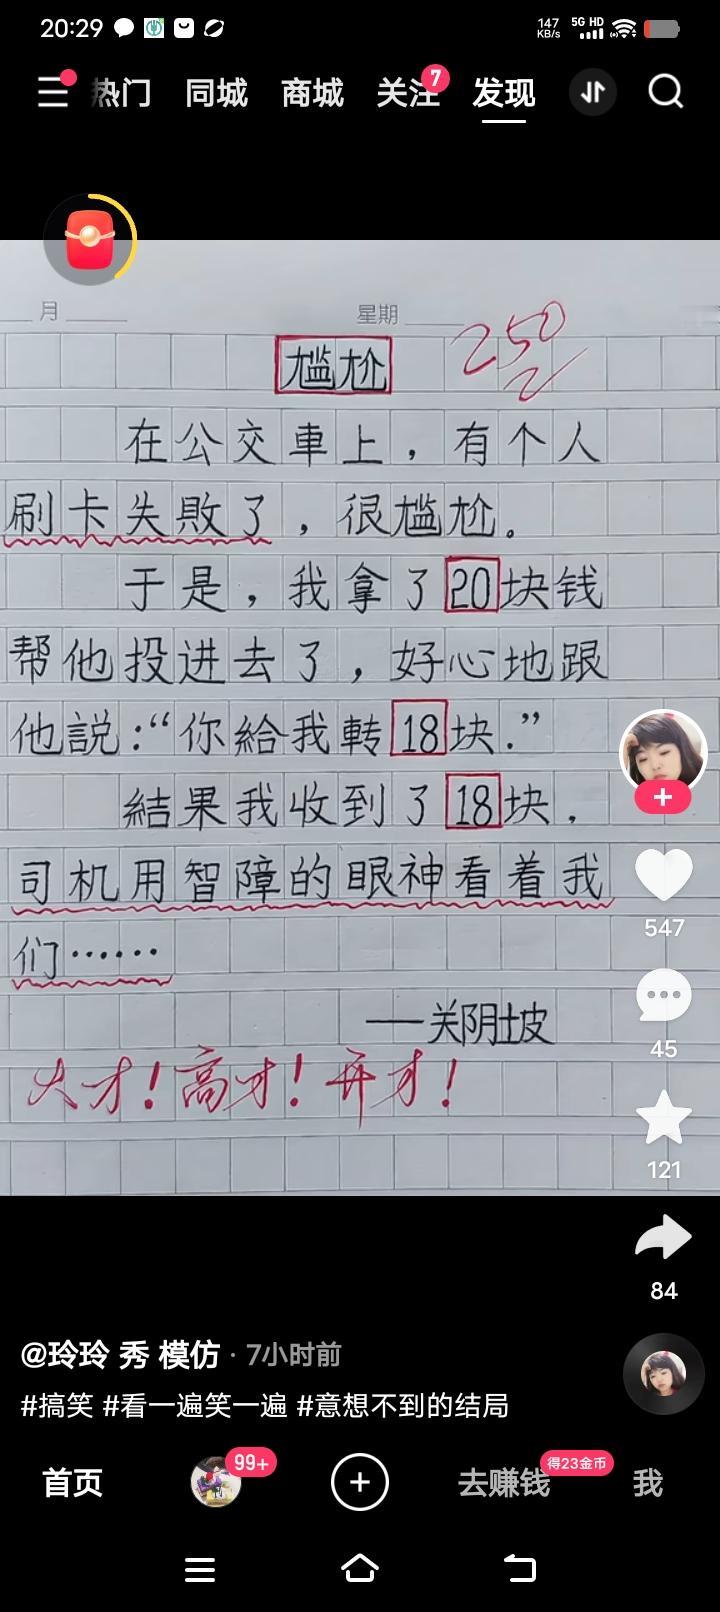 20:29
147 KB/s
5G HD
热门 同城 商城 关注 7 发现
月 星期
250
尴尬
在公交車上，有个人
刷卡失敗了，很尴尬。
于是，我拿了20块钱
帮他投进去了，好心地跟
他説：“你給我轉18块.”
結果我收到了18块．
司机用智障的眼神看着我
们……
——关阴坡
大才！高才！开才！
547
45
121
84
@玲玲 秀 模仿 · 7小时前
#搞笑 #看一遍笑一遍 #意想不到的结局
首页 99+ 去赚钱 得23金币 我